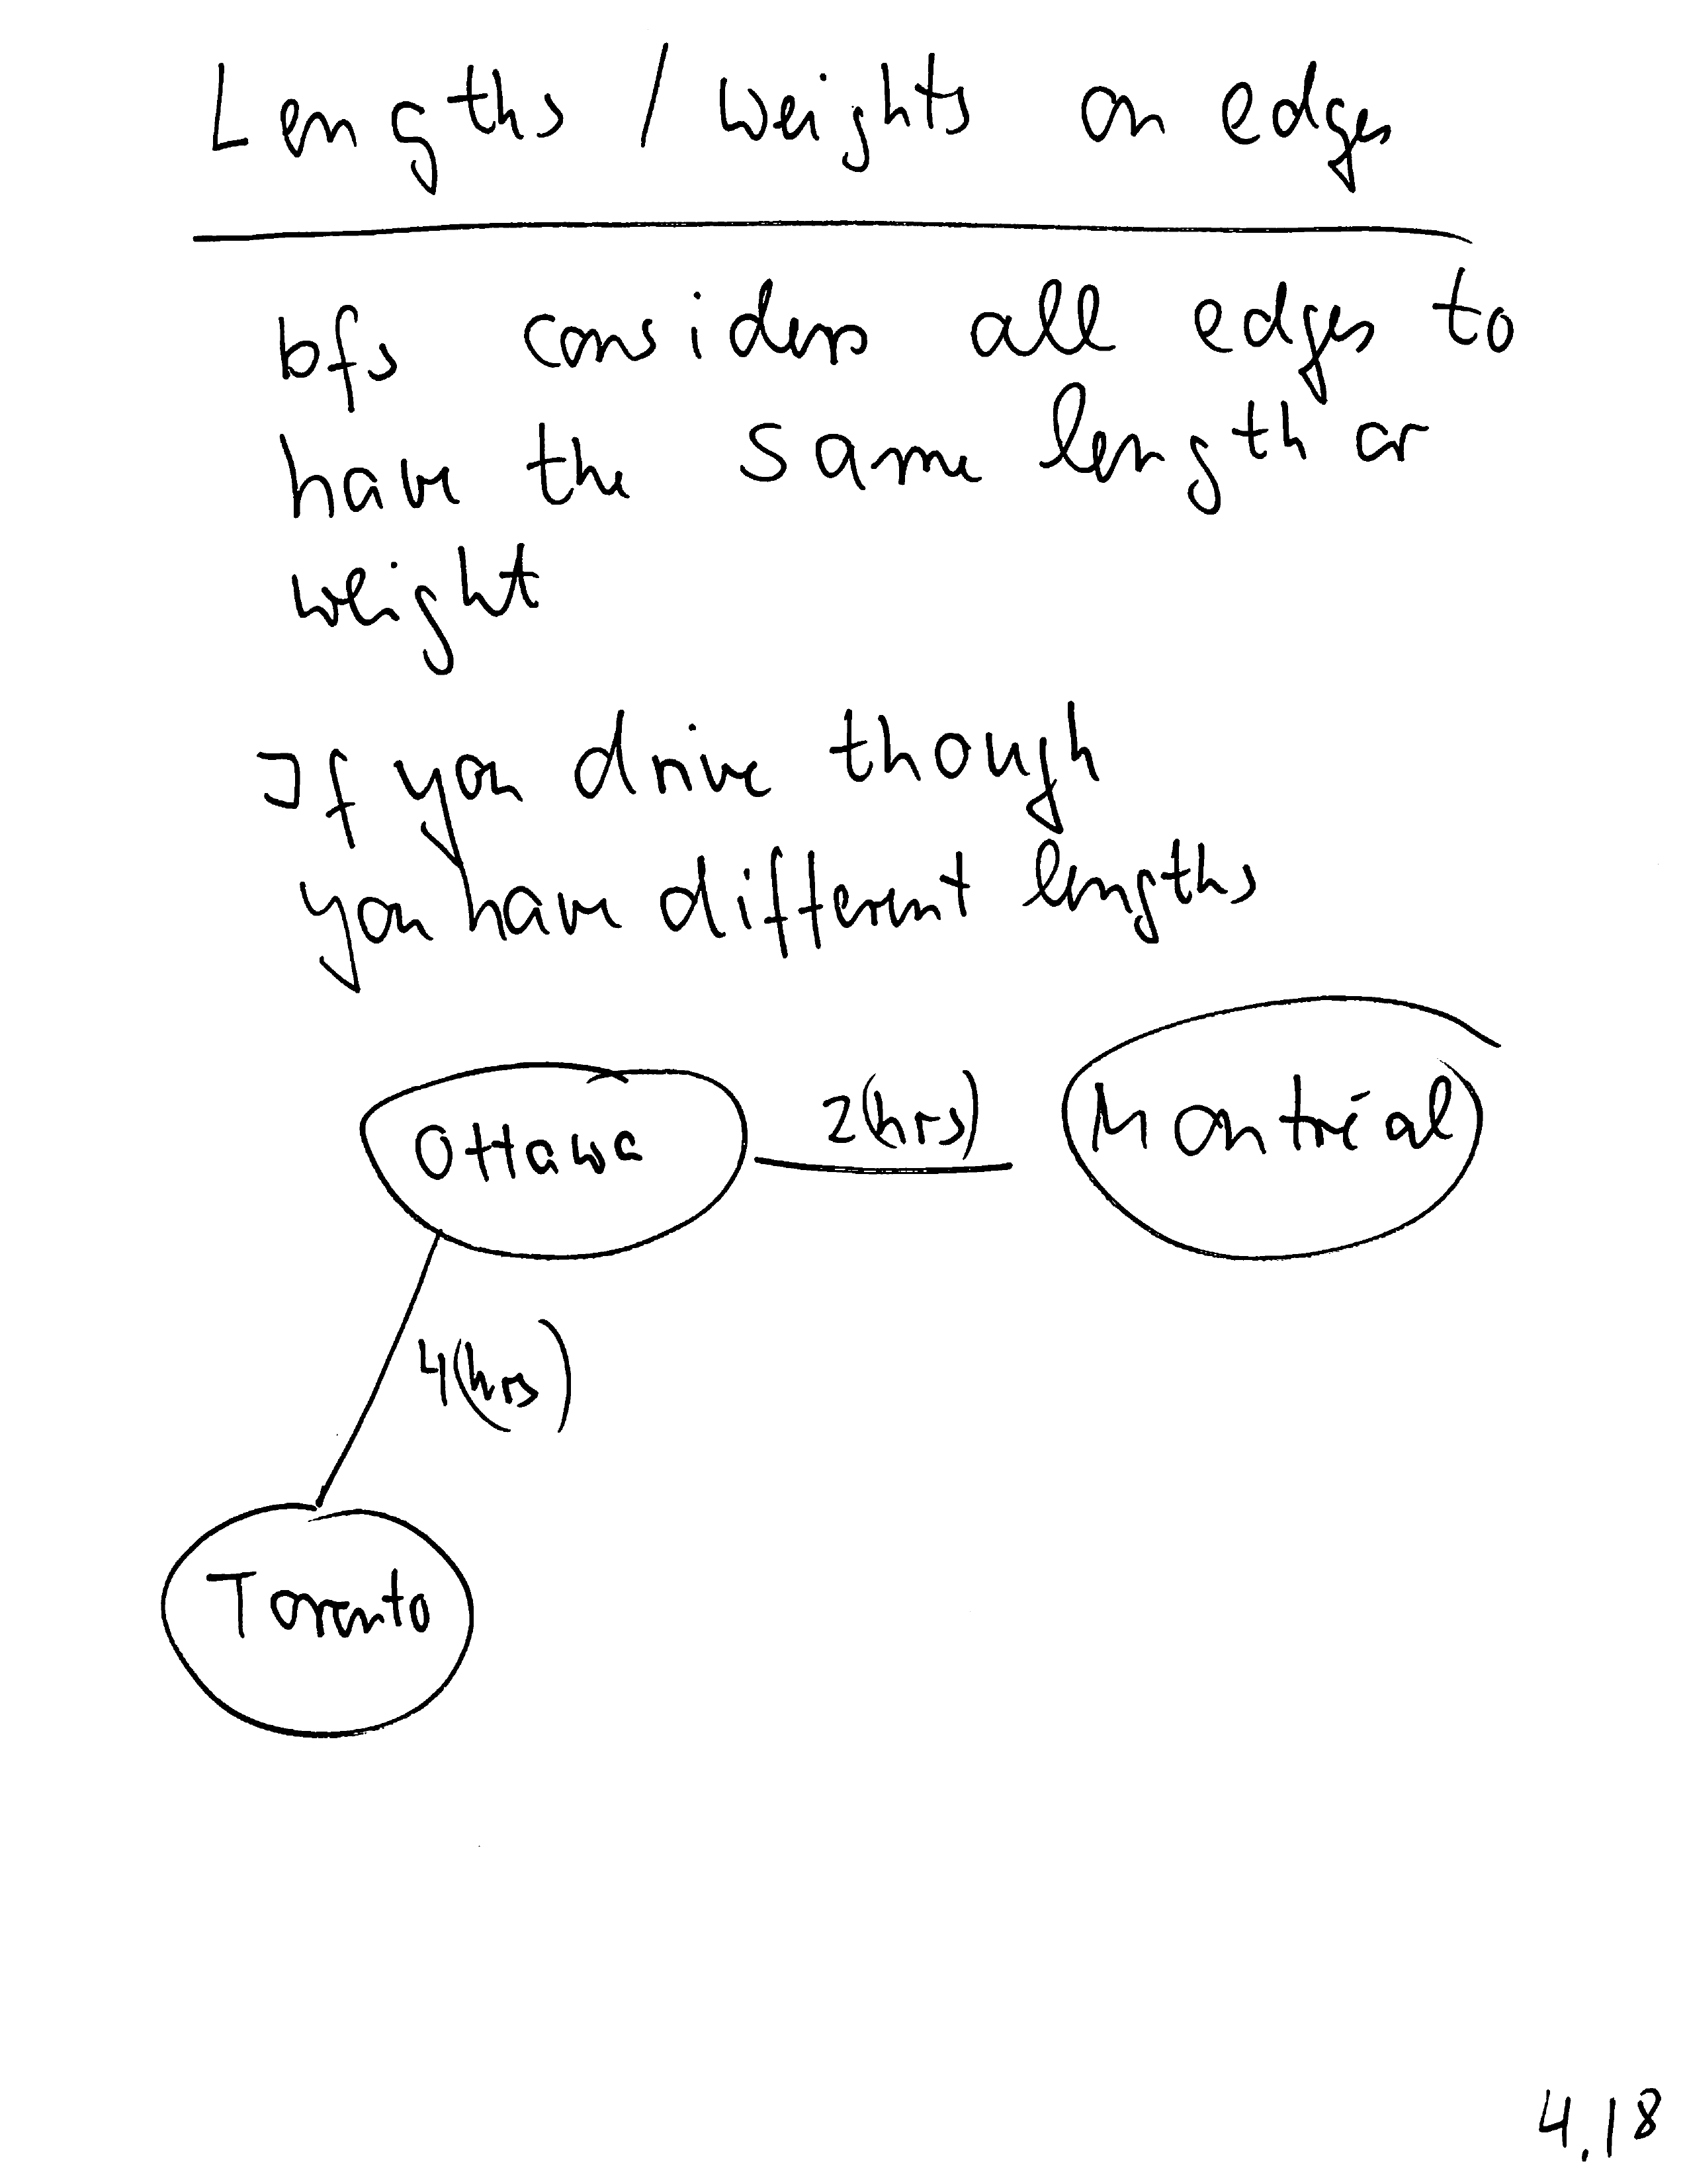 Lengths / weights on edges
bfs considers all edges to
have the same length or
weight
If you drive though
you have different lengths
Ottawa 2(hrs) Montréal
4(hrs)
Toronto
4.18